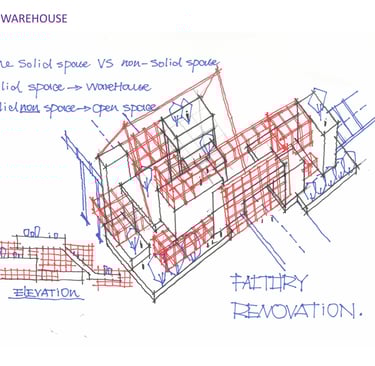 WAREHOUSE
he solid space VS non-solid space
lid space → WareHouse
lid non space → open space
ELEVATION
FACTORY
RENOVATION.